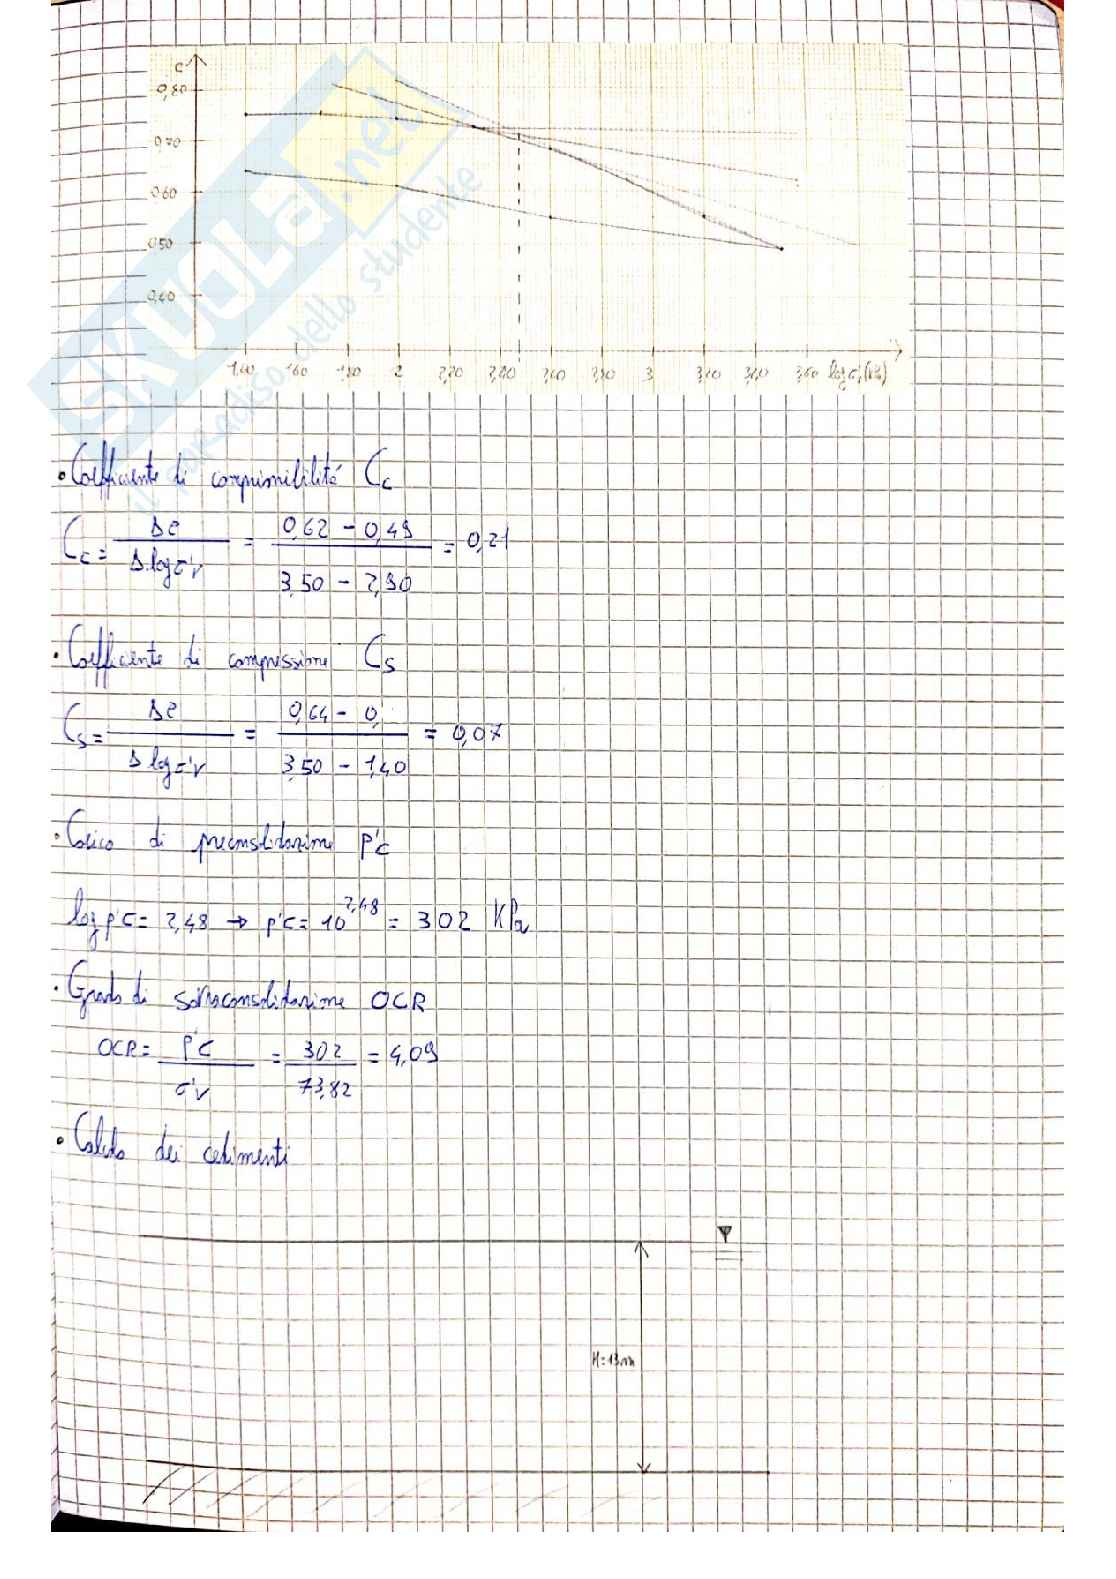 e
0,80
0,70
0,60
0,50
0,40
1,40 1,60 1,80 2 2,20 2,40 2,60 2,80 3 3,20 3,40 3,60 log σ'v (KPa)
SKUOLA.net
il paradiso dello studente
• Coefficiente di comprimibilità Cc
Cc = Δe / Δ log σ'v = 0,62 - 0,49 / 3,50 - 2,90 = 0,21
• Coefficiente di compressione Cs
Cs = Δe / Δ log σ'v = 0,64 - 0, / 3,50 - 1,40 = 0,07
• Carico di preconsolidazione p'c
log p'c = 2,48 → p'c = 10^2,48 = 302 KPa
• Grado di sovraconsolidazione OCR
OCR = p'c / σ'v = 302 / 73,82 = 4,09
• Calcolo dei cedimenti
H=13m